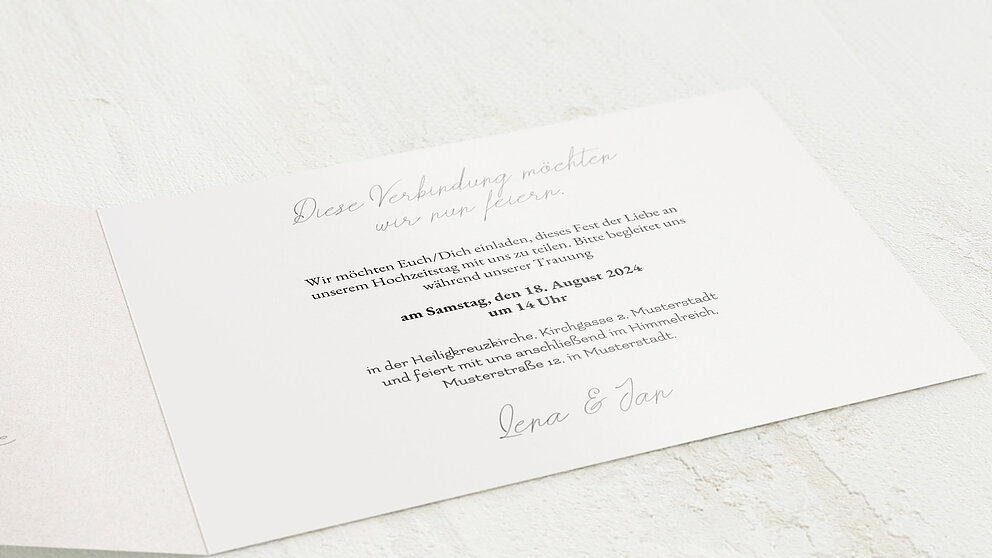 Diese Verbindung möchten
wir nun feiern.
Wir möchten Euch/Dich einladen, dieses Fest der Liebe an
unserem Hochzeitstag mit uns zu teilen. Bitte begleitet uns
während unserer Trauung
am Samstag, den 18. August 2024
um 14 Uhr
in der Heiligkreuzkirche, Kirchgasse 2, Musterstadt
und feiert mit uns anschließend im Himmelreich,
Musterstraße 12, in Musterstadt.
Lena & Jan